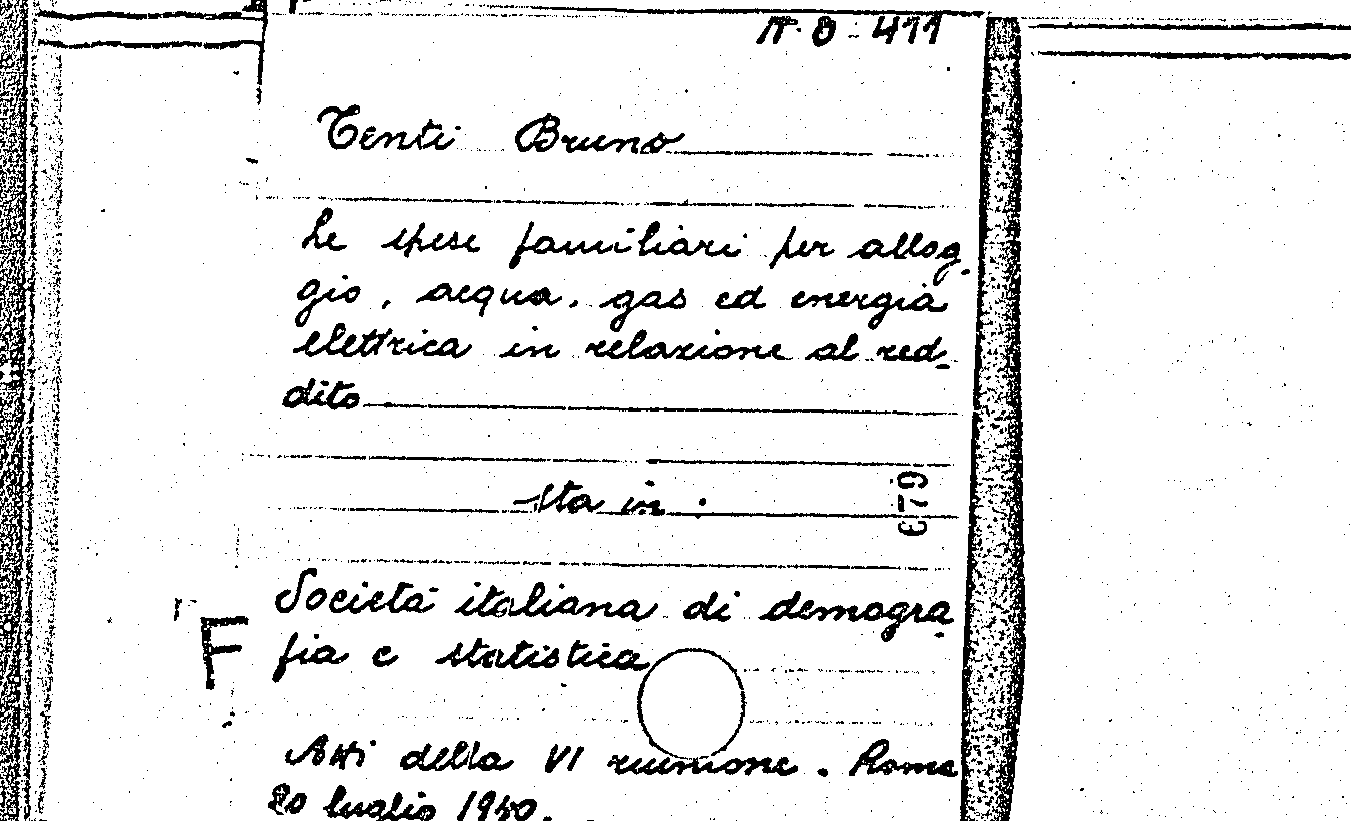 N. O - 411
Tenti Bruno
Le spese familiari per allog-
gio, acqua, gas ed energia
elettrica in relazione al red-
dito
sta in :
679
Società italiana di demogra-
fia e statistica
F
Atti della VI riunione. Roma
20 luglio 1940.